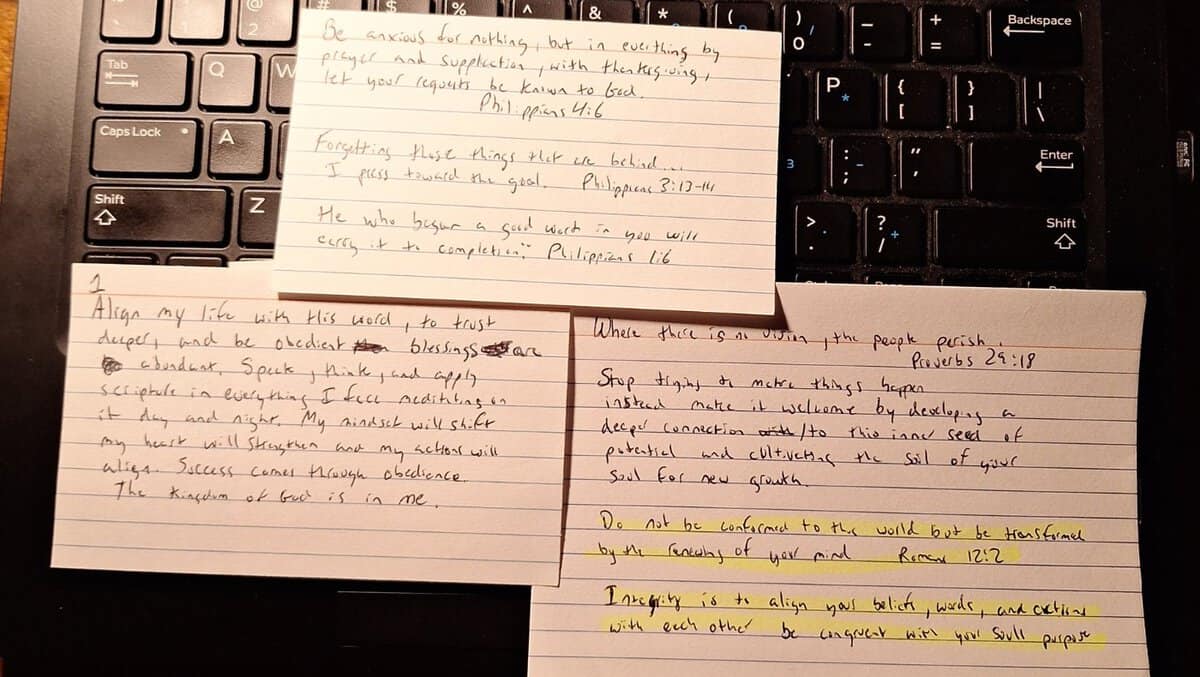 @
2
#
$
%
^
&
*
(
)
0
/
–
-
+
=
Backspace
Tab
Q
W
P
*
{
[
}
]
|
\
Caps Lock
A
3
:
;
-
"
'
Enter
Shift
Z
>
.
?
/
+
Shift
Be anxious for nothing, but in everything by
prayer and supplection, with thanksgiving,
let your requests be known to God.
Philippians 4:6
Forgetting those things that are behind....
I press toward the goal. Philippians 3:13-14
He who began a good work in you will
carry it to completion." Philippians 1:6
1
Align my life with this word, to trust
deeper, and be obedient blessings are
abundant, Speak, think, and apply
scripture in everything I face meditating on
it day and night. My mindset will shift
my heart will strengthen and my actions will
align. Success comes through obedience.
The Kingdom of God is in me.
Where there is no vision, the people perish.
Proverbs 29:18
Stop trying to make things happen
instead make it welcome by developing a
deeper connection with/to this inner seed of
potential and cultivating the soil of your
Soul for new growth.
Do not be conformed to this world but be transformed
by the renewing of your mind Romans 12:2
Integrity is to align your beliefs, words, and actions
with each other be congruent with your Soul's purpose